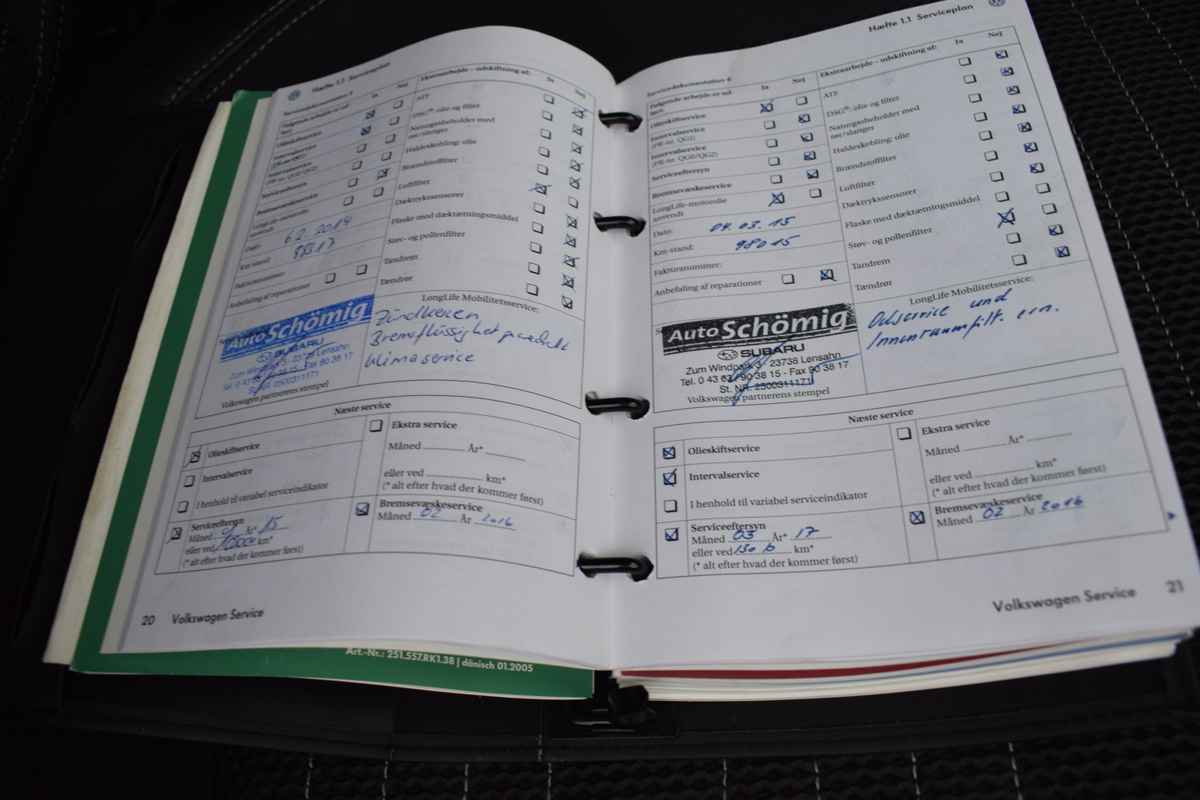 Hæfte 1.1 Serviceplan
Olieskiftservice
Intervalservice
(PR-nr. QG1)
Intervalservice
(PR-nr. QG0/QG2)
Serviceeftersyn
Bremsevæskeservice
LongLife-motorolie
anvendt
Dato: 6.2.2014
Km-stand:
Fakturanummer:
Anbefaling af reparationer
Ekstraarbejde – udskiftning af:
Ja
Nej
ATF
DSG®-olie og filter
Naturgasbeholder med
rør/slanger
Haldexkobling: olie
Brændstoffilter
Luftfilter
Dæktrykssensorer
Flaske med dæktætningsmiddel
Støv- og pollenfilter
Tandrem
Tændrør
LongLife Mobilitetsservice:
Zündkerzen
Klimaservice
Auto Schömig
SUBARU
Zum Windpark 3, 23738 Lensahn
Volkswagen partnerens stempel
Næste service
Olieskiftservice
Intervalservice
I henhold til variabel serviceindikator
Serviceeftersyn
Måned År* 15
eller ved km*
(* alt efter hvad der kommer først)
Ekstra service
Måned År*
eller ved km*
(* alt efter hvad der kommer først)
Bremsevæskeservice
Måned 02 År 2016
20 Volkswagen Service
Art.-Nr.: 251.557.RK1.38 | dänisch 01.2005
Hæfte 1.1 Serviceplan
Ja
Nej
Olieskiftservice
Intervalservice
(PR-nr. QG1)
Intervalservice
(PR-nr. QG0/QG2)
Serviceeftersyn
Bremsevæskeservice
LongLife-motorolie
anvendt
Dato: 04.03.15
Km-stand: 98015
Fakturanummer:
Anbefaling af reparationer
Ekstraarbejde – udskiftning af:
Ja
Nej
ATF
DSG®-olie og filter
Naturgasbeholder med
rør/slanger
Haldexkobling: olie
Brændstoffilter
Luftfilter
Dæktrykssensorer
Flaske med dæktætningsmiddel
Støv- og pollenfilter
Tandrem
Tændrør
LongLife Mobilitetsservice:
Oelservice und
Innenraumfilt. ern.
Auto Schömig
SUBARU
Zum Windpark 3, 23738 Lensahn
Tel. 0 43 63 / 90 38 15 - Fax 90 38 17
St. NR. 2500311171
Volkswagen partnerens stempel
Næste service
Olieskiftservice
Intervalservice
I henhold til variabel serviceindikator
Serviceeftersyn
Måned 03 År* 17
eller ved km*
(* alt efter hvad der kommer først)
Ekstra service
Måned År*
eller ved km*
(* alt efter hvad der kommer først)
Bremsevæskeservice
Måned 02 År 2016
Volkswagen Service 21